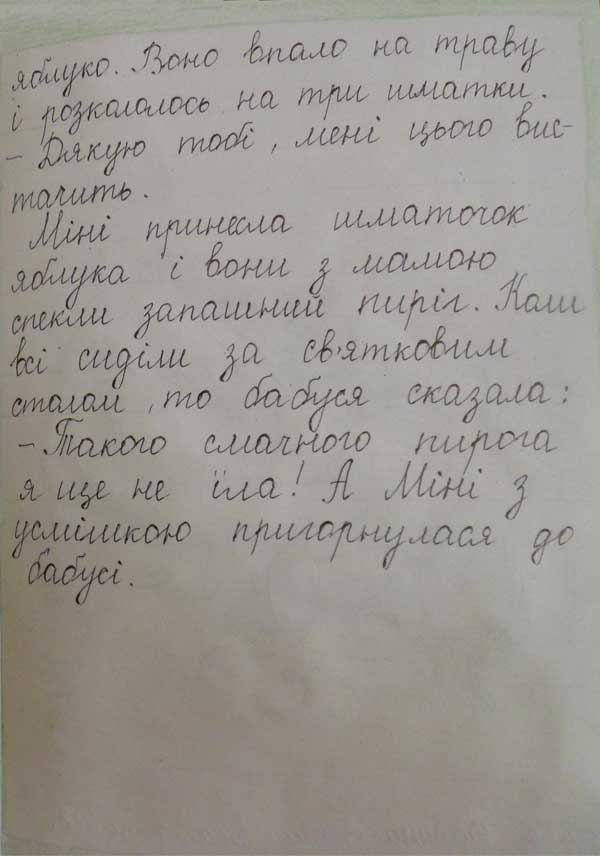 яблуко. Воно впало на траву
і розкололось на три шматки.
– Дякую тобі, мені цього вис-
тачить.
Міні принесла шматочок
яблука і вони з мамою
спекли запашний пиріг. Коли
всі сиділи за св'ятковим
столом, то бабуся сказала:
– Такого смачного пирога
я ще не їла! А Міні з
усмішкою пригорнулася до
бабусі.